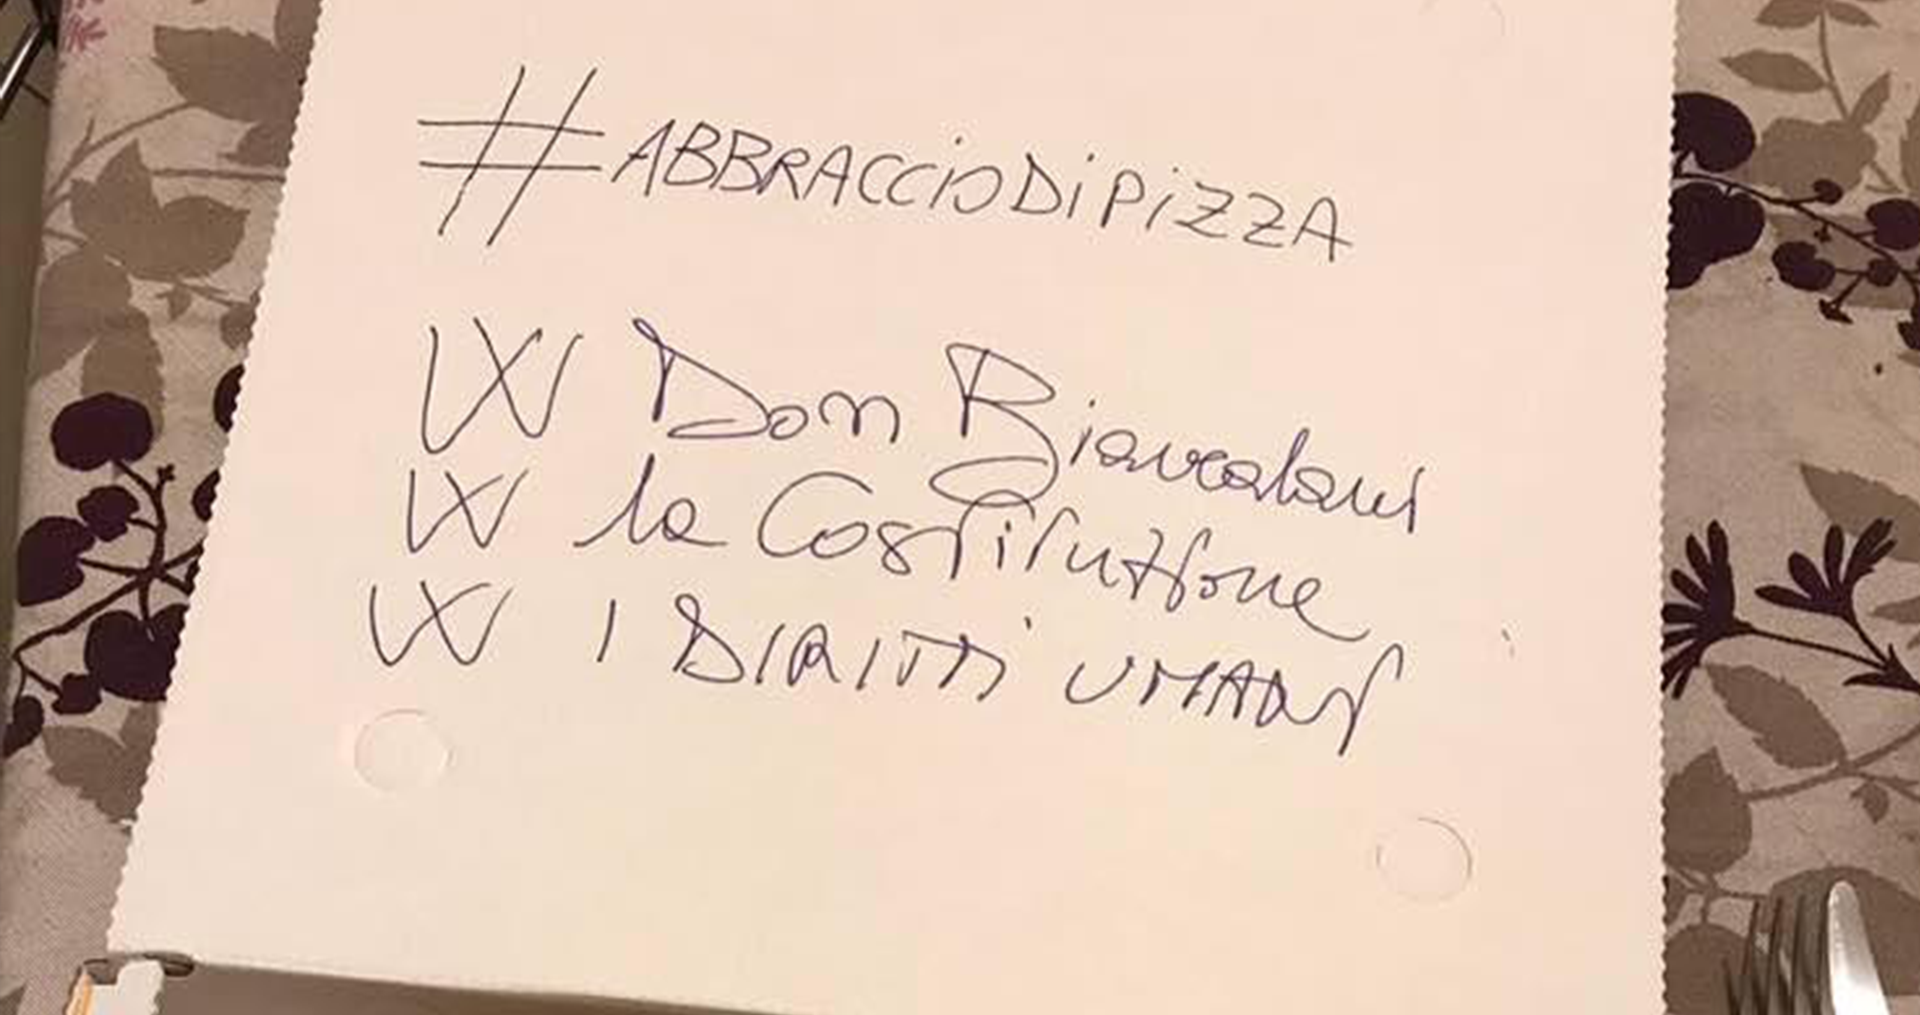 #ABBRACCIODIPIZZA
W Don Biancalani
W la Costituzione
W I DIRITTI UMANI